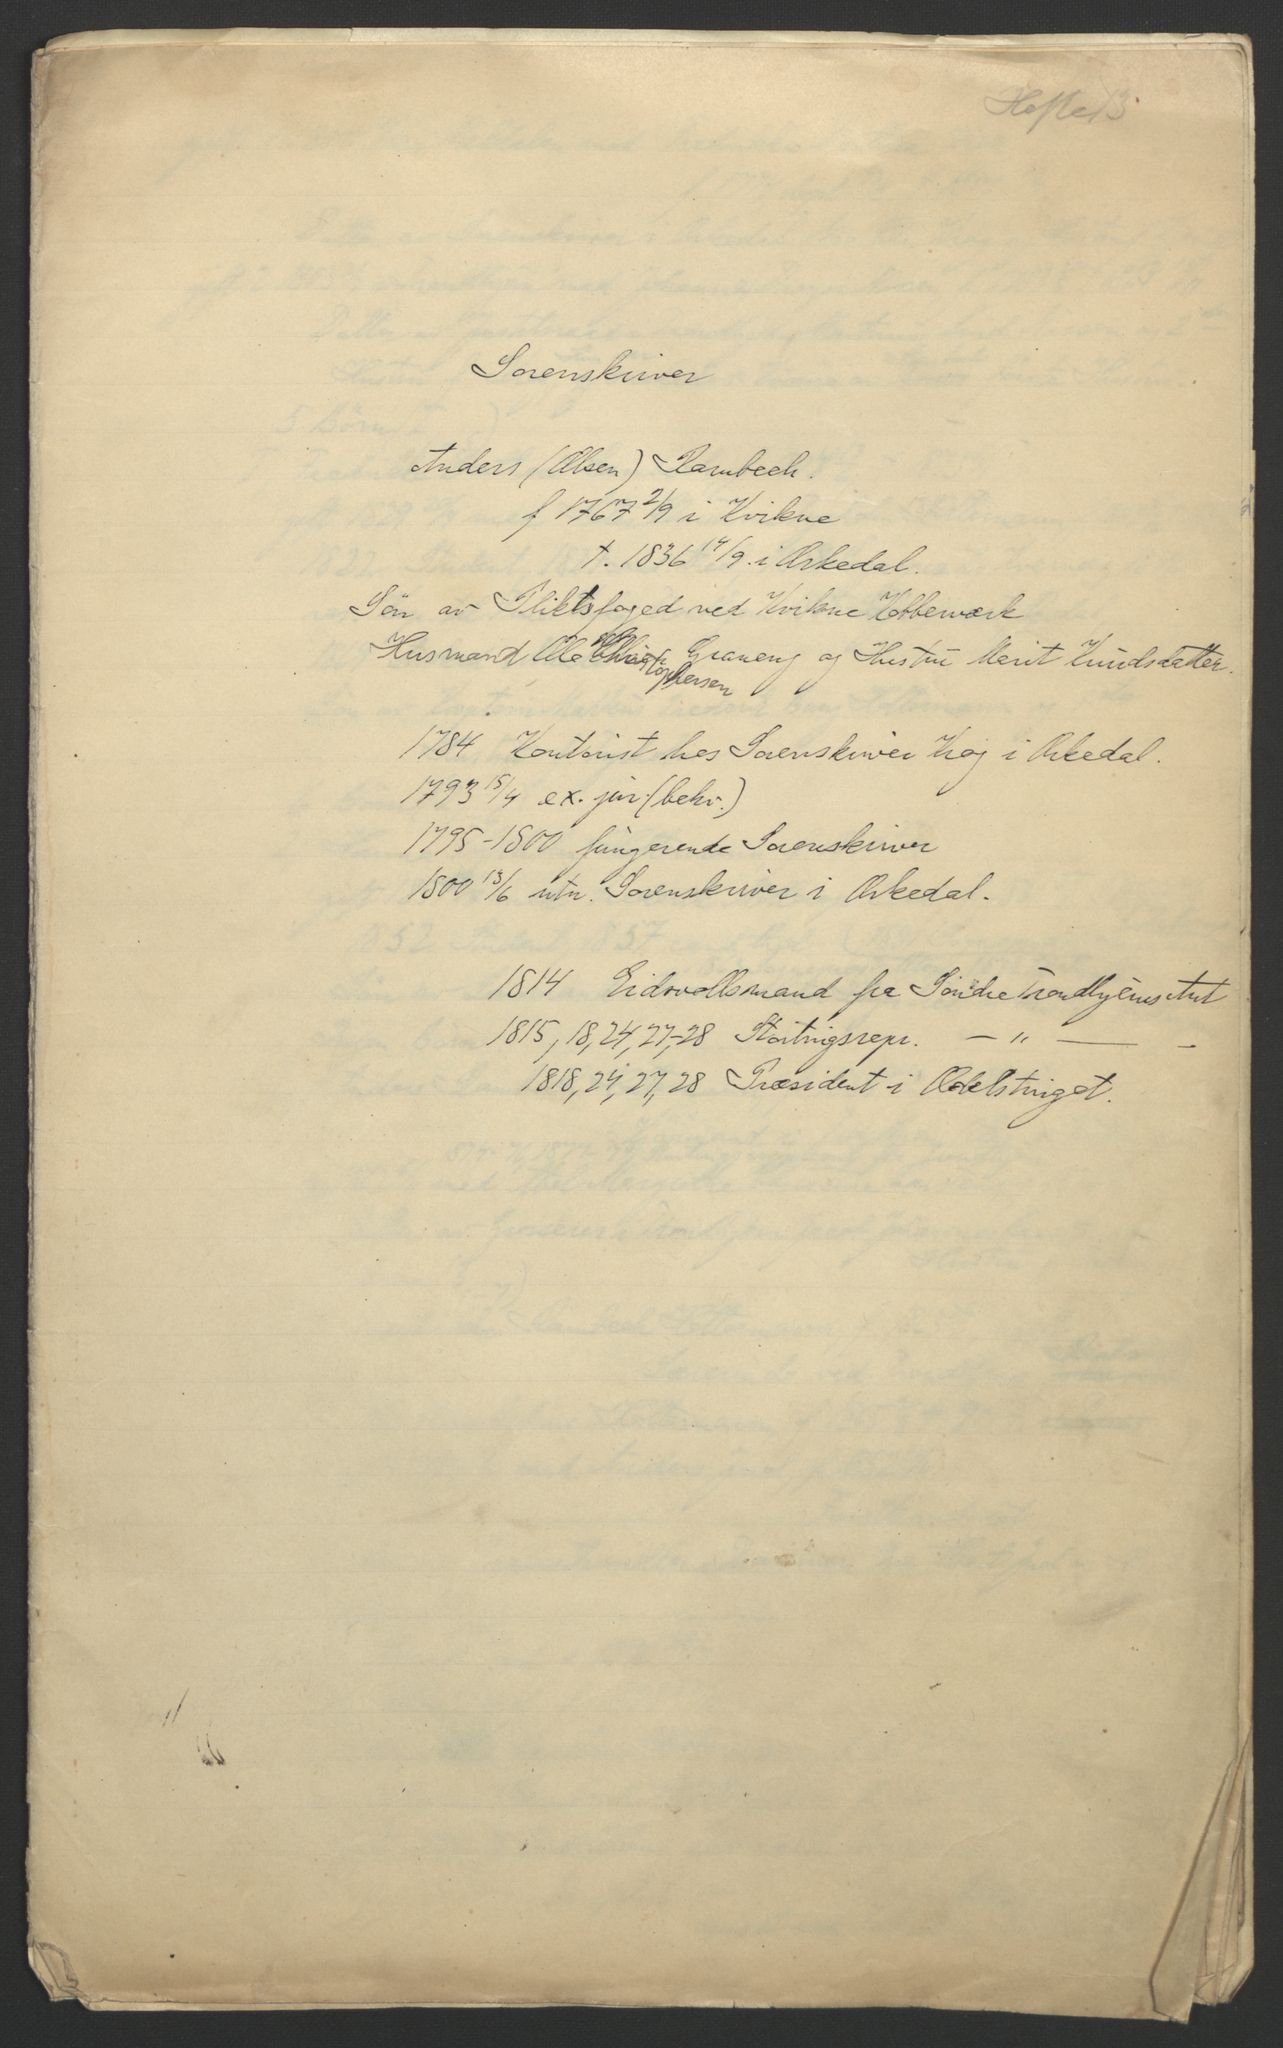 Hefte 13
Sorenskriver
Anders (Olsen) Rambech.
f 1767 2/9 i Kvikne
†. 1836 14/9. i Orkedal.
Sön av Stiktsfoged ved Kvikne Kobberværk
Husmand Ole Christophersen Graneng og Hustru Marit Knudsdatter.
1784 Kontorist hos Sorenskriver Krog i Orkedal.
1793 15/4 ex. jur. (bekv.)
1795-1800 fungerende Sorenskriver
1800 13/6 utn. Sorenskriver i Orkedal.
1814 Eidsvollsmand fra Söndre Trondhjems Amt
1815, 18, 24, 27, -28 Stortingsrepr. — " — -
1818, 24, 27, 28 Præsident i Odelstinget.